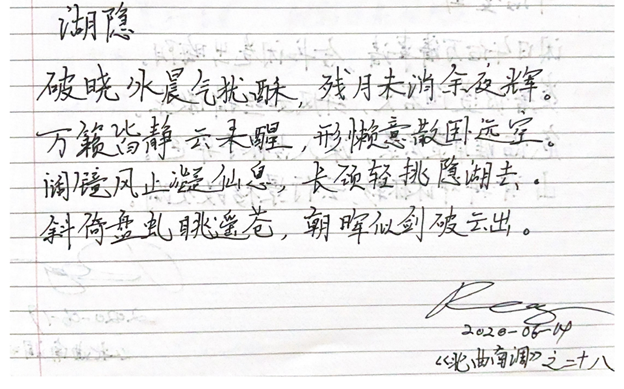 湖隐
破晓冰晨气扰酥，残月未消余夜辉。
万籁皆静云未醒，形懒意散卧远空。
阔镜风止凝仙息，长颈轻挑隐湖去。
斜倚盘虬眺遥苍，朝晖似剑破云出。
2020-06-04
《北曲南调》之二十八